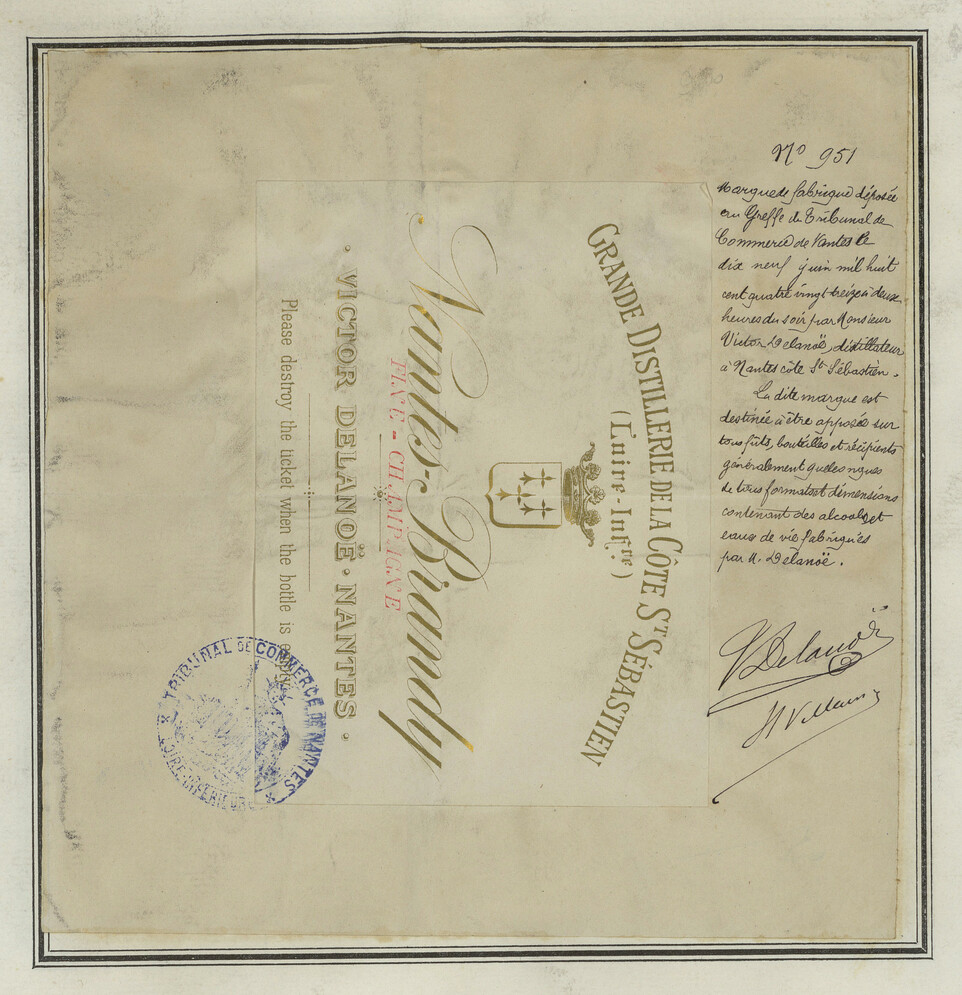 Nº 951
Marque de fabrique déposée
au Greffe du Tribunal de
Commerce de Nantes le
dix neuf juin mil huit
cent quatre vingt treize à deux
heures du soir par Monsieur
Victor Delanoë, distillateur
à Nantes côte St Sébastien.
La dite marque est
destinée à être apposée sur
tous fûts, bouteilles et récipients
généralement quelconques
de tous formats et dimensions
contenant des alcools et
eaux de vie fabriqués
par M. Delanoë.
V Delanoë
GRANDE DISTILLERIE DE LA CÔTE ST SÉBASTIEN
(Loire-Infre)
Nantes-Brandy
FINE-CHAMPAGNE
• VICTOR DELANOË • NANTES •
Please destroy the ticket when the bottle is empty.
TRIBUNAL DE COMMERCE DE NANTES
LOIRE-INFÉRIEURE